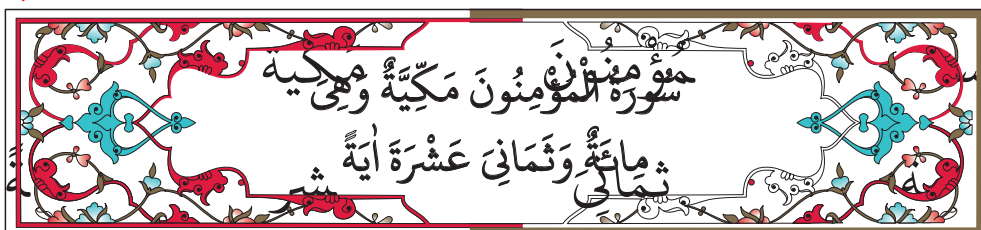 سُورَةُ الْمُؤْمِنُونَ مَكِّيَّةٌ وَهِىَ
مِائَةٌ وَثَمَانِىَ عَشْرَةَ اٰيَةً